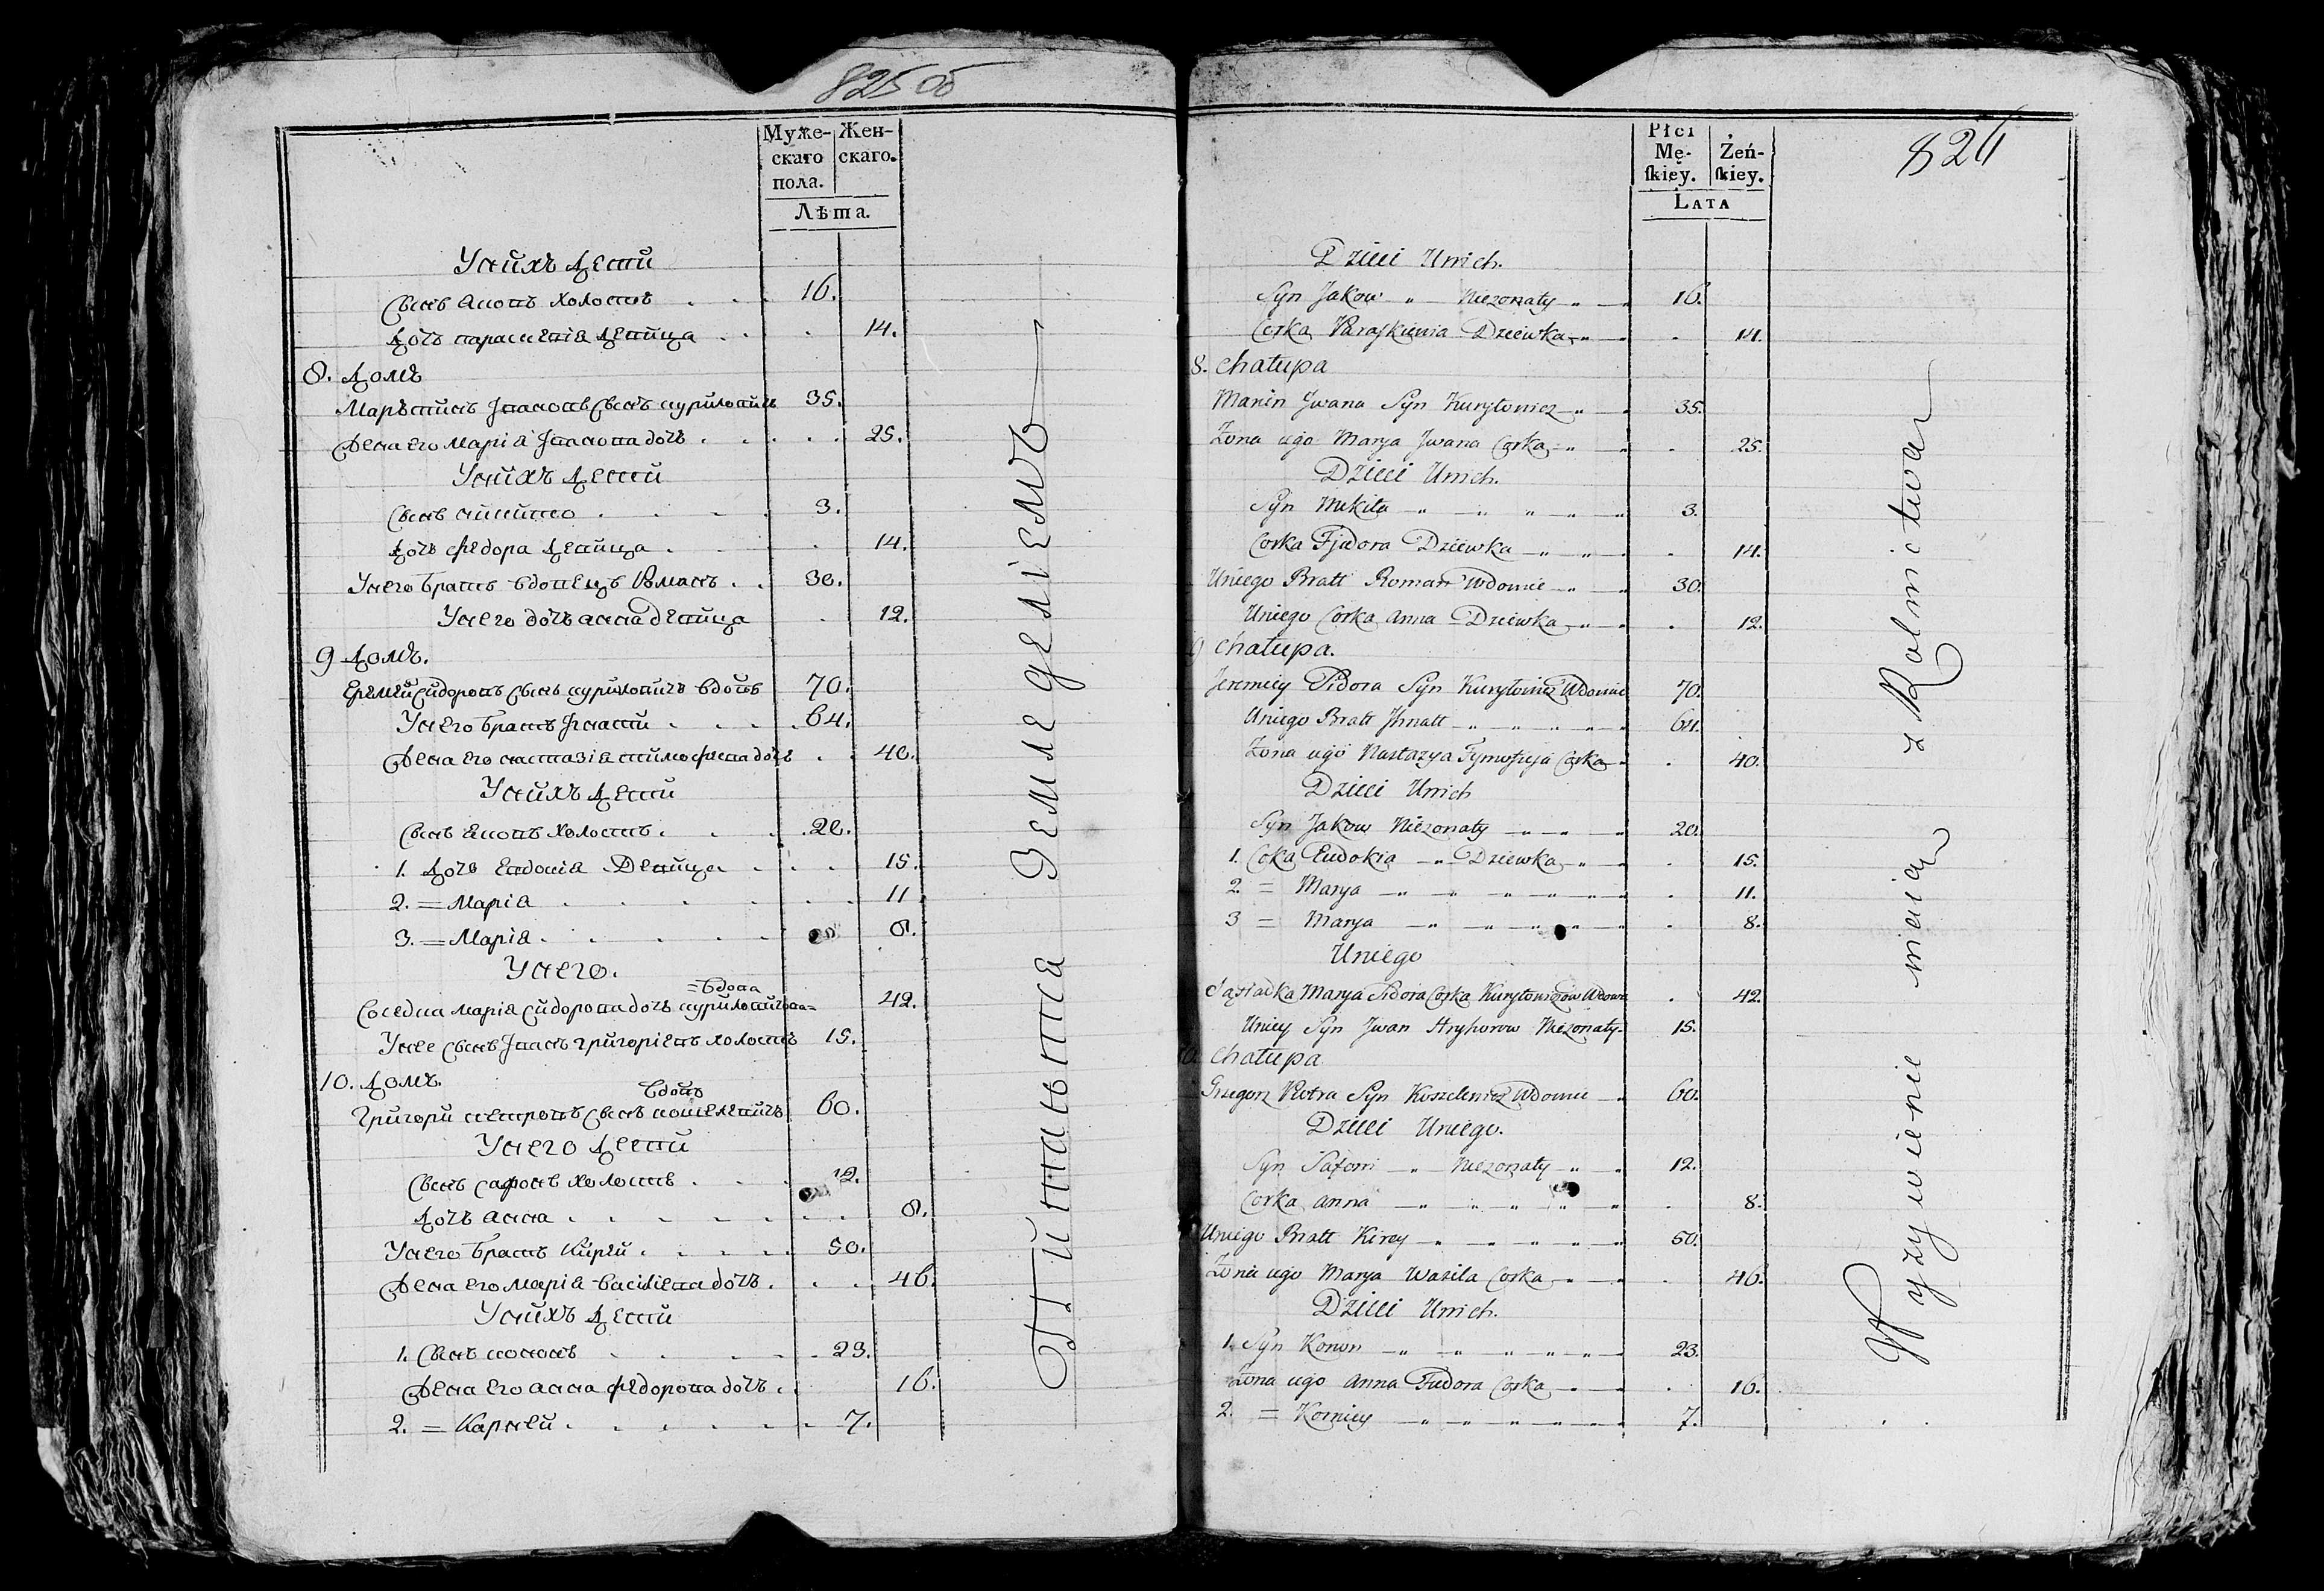 825 об
Муже- Жен-
скаго скаго.
пола.
Лѣта.
Унихъ Дети
Сынъ Яковъ холостъ . . . 16.
Дочь параскевія девица . . . 14.
8. Домъ
Мартинъ Ивановъ Сынъ куриловичь 35.
Жена его Марія Иванова дочь . . . . 25.
Унихъ Дети
Сынъ никита . . . . 3.
Дочь федора девица . . . 14.
Унего братъ вдовецъ Романъ . . 30.
Унего дочь анна девица . 12.
9 Домъ.
Еремей Сидоровъ Сынъ куриловичь вдовъ 70.
Унего братъ Игнати . . . . 64.
Жена его настазія тимофеева дочь . . 40.
Унихъ Дети
Сынъ Яковъ холостъ . . . . 20.
1. Дочь Евдокія Девица . . . 15.
2. = Марія . . . . . . 11.
3. = Марія . . . . . 8.
Унего.
=вдова
Соседка марія Сидорова дочь куриловичова= 42.
Унее Сынъ Иванъ григоріевъ холостъ 15.
10. Домъ.
вдовъ
Григори петровъ Сынъ кошелевичь 60.
Унего Дети
Сынъ сафонъ холостъ . . . 12.
Дочь анна . . . . . . 8.
Унего братъ Кирей . . . . 50.
Жена его марія василева дочь . . . 46.
Унихъ Дети
1. Сынъ кононъ . . . . 23.
Жена его анна федорова дочь . . 16.
2. = Карней . . . . . . 7.
Питаются Земледеліемъ
824
Płci
Mę- Żeń-
ſkiey. ſkiey.
LATA
Dzieci Unich.
Syn Jakow „ Niezonaty „ — 16.
Corka Paraſkiewia Dziewka „ — . 14.
8. Chałupa
Marcin Jwana Syn Kuryłowicz „ — 35.
Zona iego Marya Jwana Corka „ — . 25.
Dzieci Unich.
Syn Mekita „ — „ „ „ 3.
Corka Fjedora Dziewka — „ „ . 14.
Uniego Bratt Roman Wdowiec „ — 30.
Uniego Corka Anna Dziewka „ — . 12.
9 Chałupa.
Jeremiey Sidora Syn Kuryłowicz Wdowiec 70.
Uniego Bratt Jhnatt „ „ „ „ 64.
Zona iego Nastazya Tymofieja Corka . 40.
Dzieci Unich
Syn Jakow Niezonaty — „ — 20.
1. Coka Eudokia — „ Dziewka „ — . 15.
2. = Marya — „ „ „ „ „ . 11.
3 = Marya — „ „ „ „ „ . 8.
Uniego
Sąsiadka Marya Sidora Corka Kuryłowiczow Wdowa . 42.
Uniey Syn Jwan Hryhorow Niezonaty 15.
10 Chałupa
Grzegorz Piotra Syn Koszelewicz Wdowiec — 60.
Dzieci Uniego.
Syn Safon „ — Niezonaty „ — 12.
Corka Anna — „ „ „ „ „ . 8.
Uniego Bratt Kirey „ — „ „ „ 50.
Zona iego Marya Wasila Corka „ — . 46.
Dzieci Unich.
1. Syn Konon — „ „ „ „ „ 23.
Zona iego Anna Fiedora Corka — „ . 16.
2. = Korniey — „ „ „ „ „ 7.
Wyzywienie maią z Rolnictwa